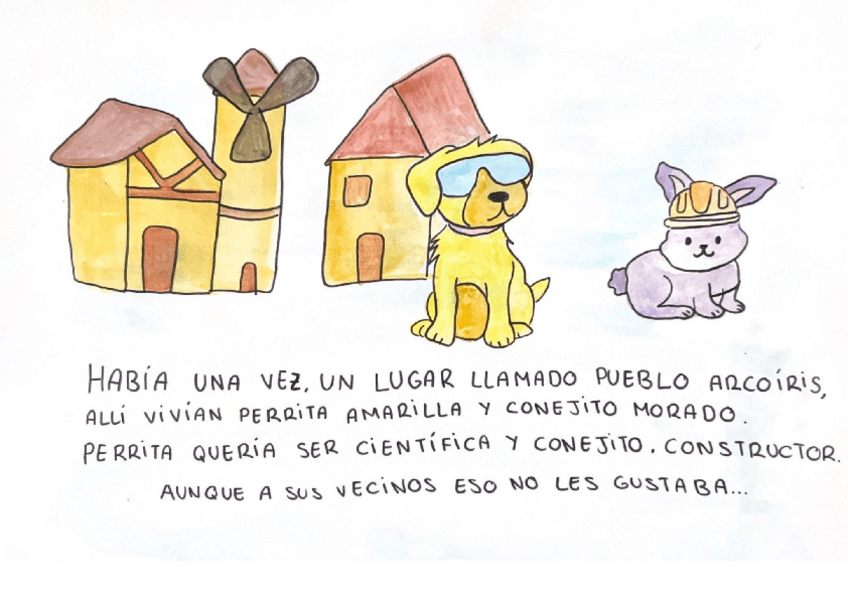 HABÍA UNA VEZ, UN LUGAR LLAMADO PUEBLO ARCOÍRIS,
ALLÍ VIVÍAN PERRITA AMARILLA Y CONEJITO MORADO.
PERRITA QUERÍA SER CIENTÍFICA Y CONEJITO, CONSTRUCTOR.
AUNQUE A SUS VECINOS ESO NO LES GUSTABA...